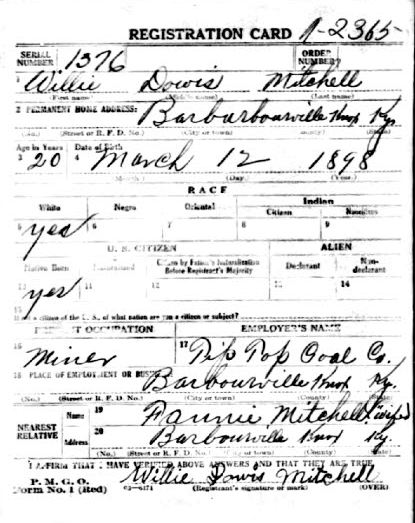 REGISTRATION CARD 1-2365
SERIAL NUMBER 1376 ORDER NUMBER
1 Willie Dowis Mitchell
(First name) (Middle name) (Last name)
2 PERMANENT HOME ADDRESS: Barbarbourville Knox Ky.
(No.) (Street or R. F. D. No.) (City or town) (County) (State)
Age in Years Date of Birth
3 20 4 March 12 1898
(Month.) (Day.) (Year.)
RACE
White Negro Oriental Indian
Citizen Noncitizen
5 yes 6 7 8 9
U. S. CITIZEN ALIEN
Native Born Naturalized Citizen by Father's Naturalization Before Registrant's Majority Declarant Non-declarant
10 yes 11 12 13 14
15 If not a citizen of the U. S., of what nation are you a citizen or subject?
PRESENT OCCUPATION EMPLOYER'S NAME
16 Miner 17 Tip Top Coal Co.,
18 PLACE OF EMPLOYMENT OR BUSINESS Barbourville Knox Ky.
(No.) (Street or R. F. D. No.) (City or town) (County) (State)
NEAREST RELATIVE Name 19 Fannie Mitchell (wife)
Address 20 Barbourville Knox Ky.
(No.) (Street or R. F. D. No.) (City or town) (County) (State)
I AFFIRM THAT I HAVE VERIFIED ABOVE ANSWERS AND THAT THEY ARE TRUE
P. M. G. O.
Form No. 1 (Red) 03-6171 Willie Dowis Mitchell
(Registrant's signature or mark) (OVER)